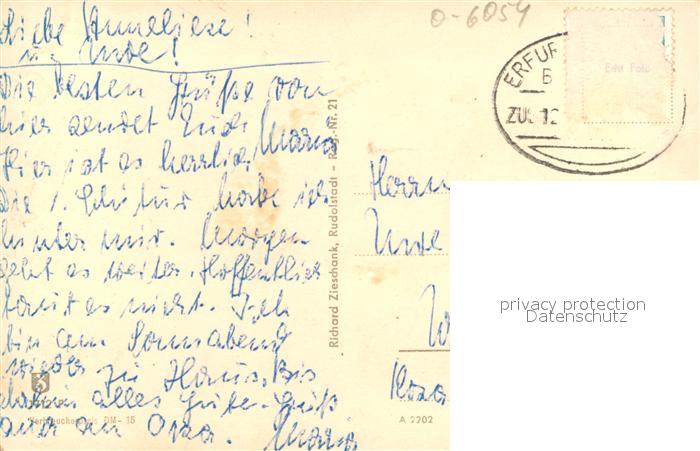 Liebe Anneliese!
u. Uwe!
Die besten Grüße von
hier sendet Euch Maria
Hier ist es herrlich.
Die 1. Skitur habe ich
hinter mir. Morgen
geht es weiter. Hoffentlich
taut es nicht. Ich
bin am Sonnabend
wieder zu Hause. Bis
dahin alles Gute. Gruß
auch an Opa. Maria
0-6054
ERFUR
ZUG 12
Echt Foto
Richard Zieschank, Rudolstadt - Reg.-Nr. 21
Herrn
Uwe
A 2202
DM -.15
privacy protection
Datenschutz